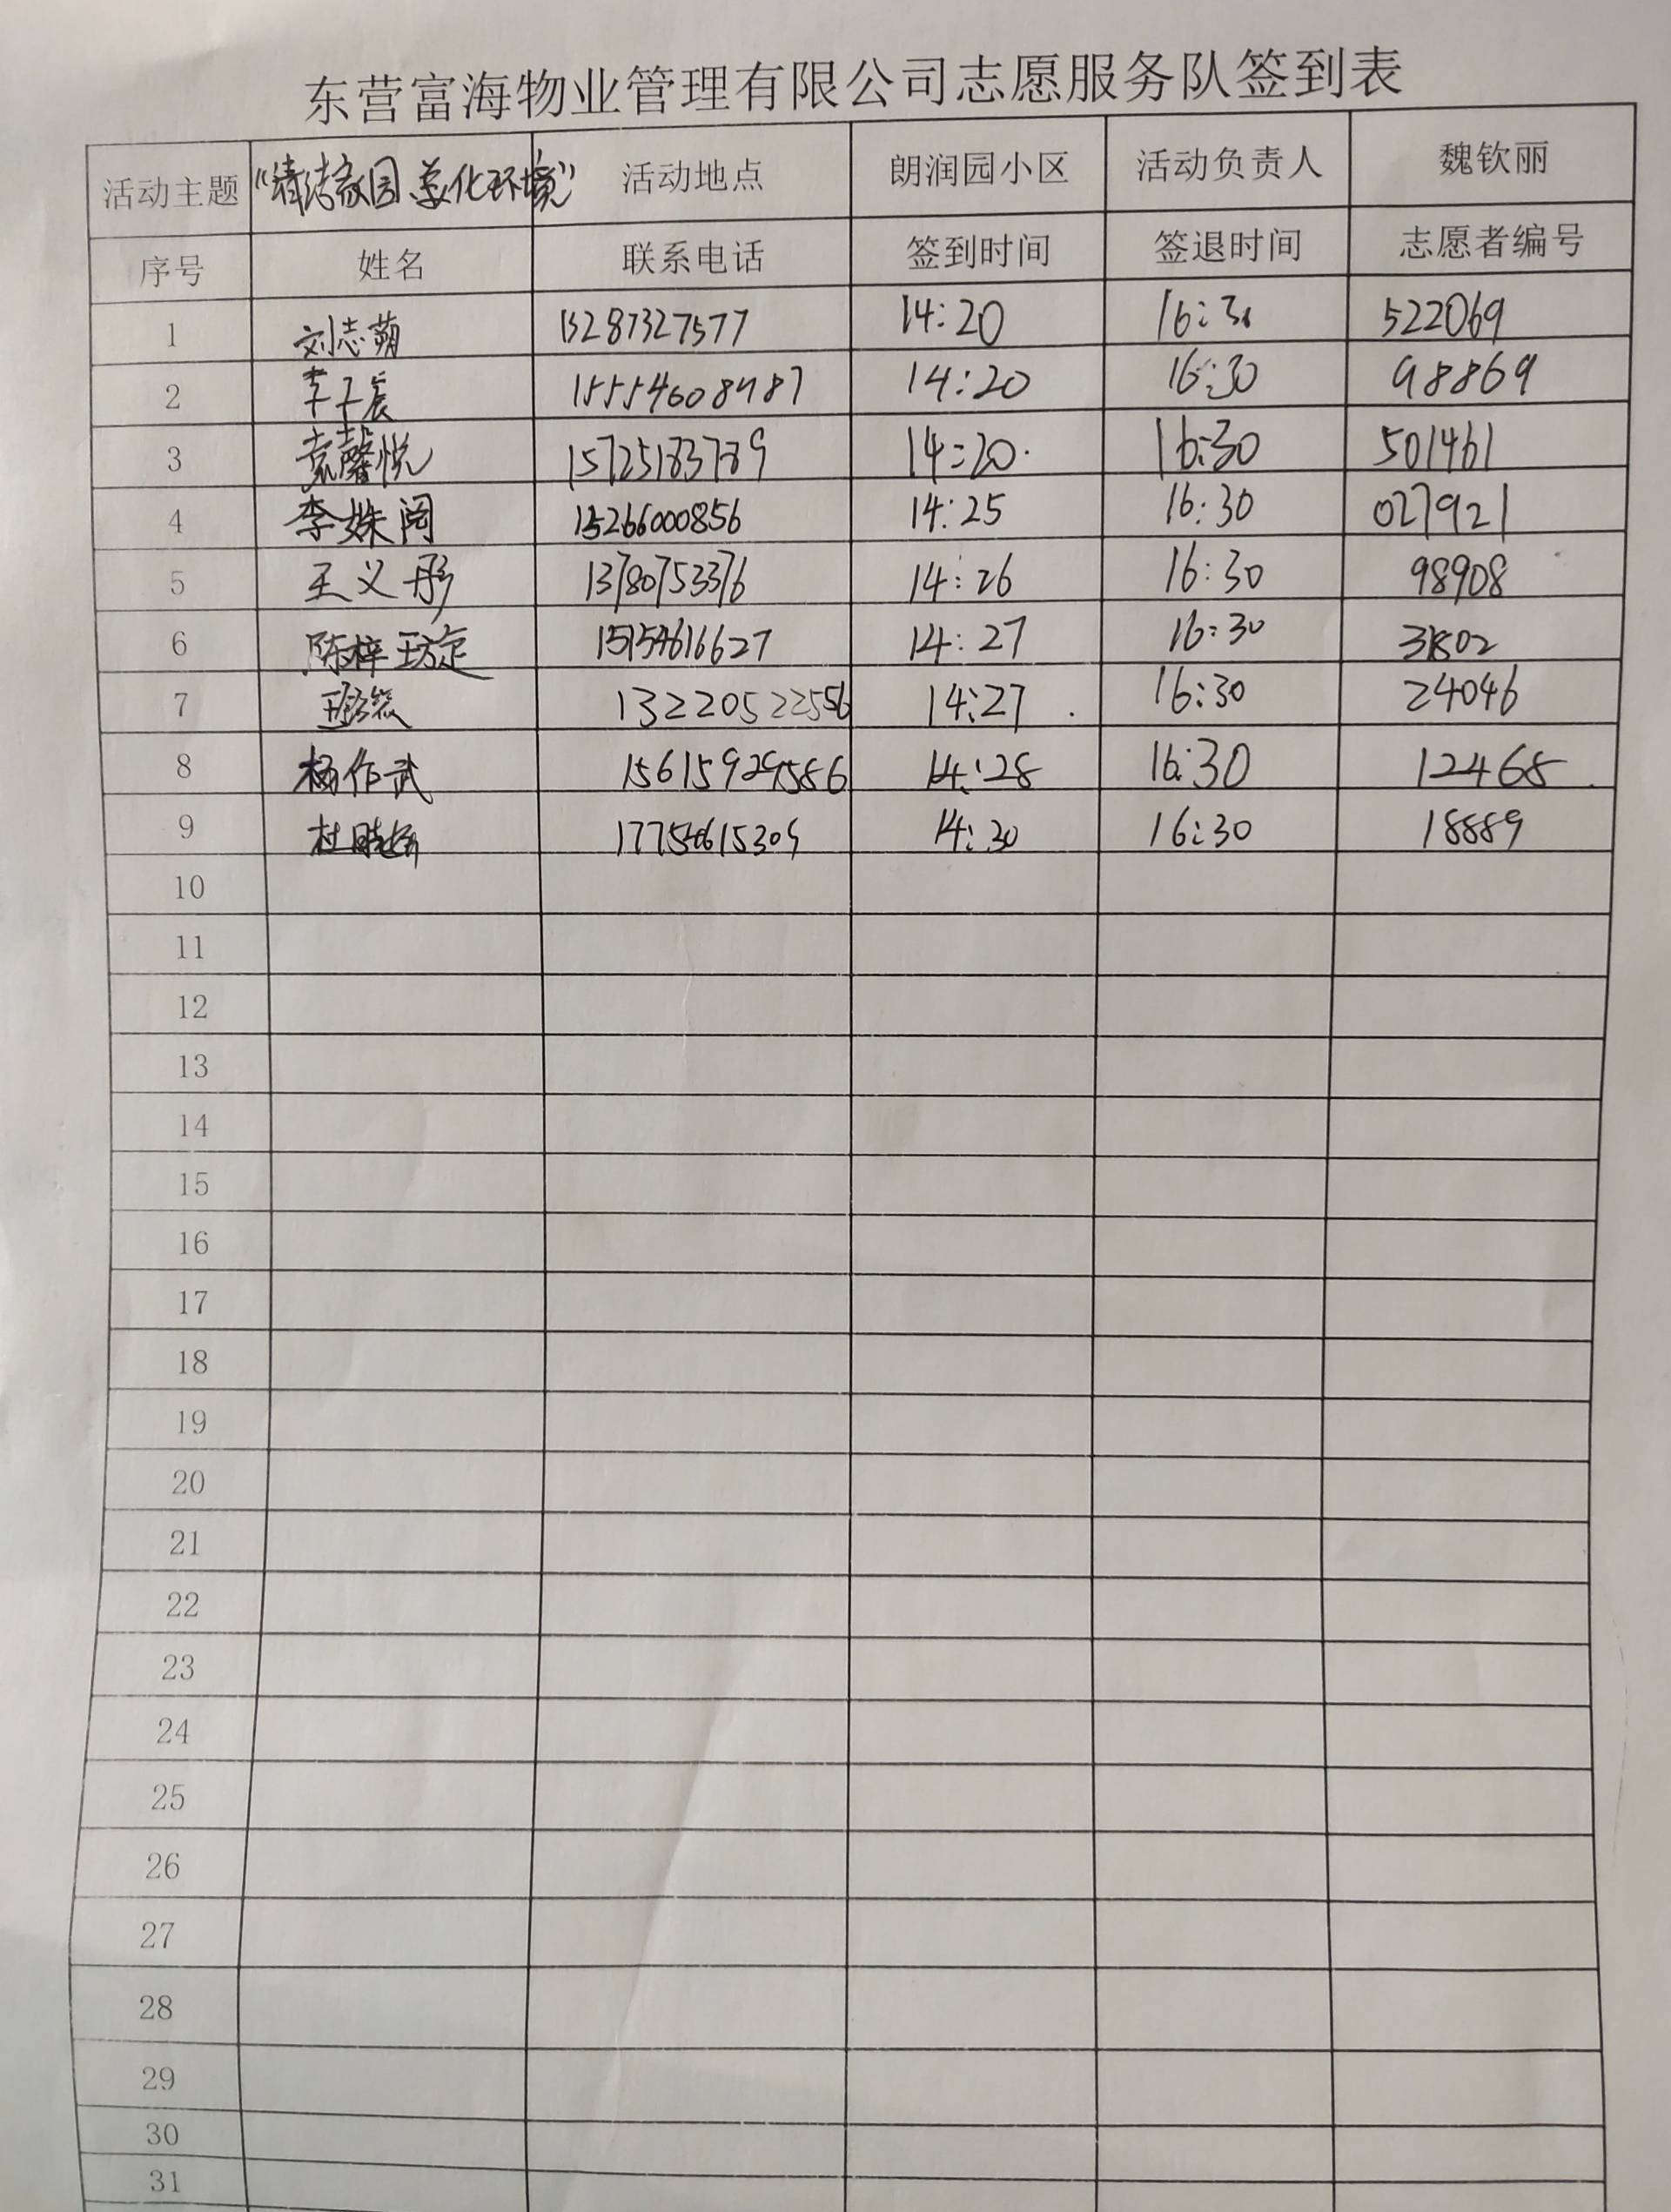 东营富海物业管理有限公司志愿服务队签到表
活动主题 “清洁家园 美化环境” 活动地点 朗润园小区 活动负责人 魏钦丽
序号 姓名 联系电话 签到时间 签退时间 志愿者编号
1 刘志萌 13287327577 14:20 16:30 522069
2 李子宸 15554608987 14:20 16:30 98869
3 袁馨悦 15725183789 14:20 16:30 501461
4 李姝阅 15266000856 14:25 16:30 027921
5 王义彤 13780753376 14:26 16:30 98908
6 陈梓璇 15154616627 14:27 16:30 31802
7 13220522556 14:27 16:30 24046
8 杨作武 15615929586 14:28 16:30 12468
9 杜晓扬 17754615309 14:30 16:30 18889
10
11
12
13
14
15
16
17
18
19
20
21
22
23
24
25
26
27
28
29
30
31